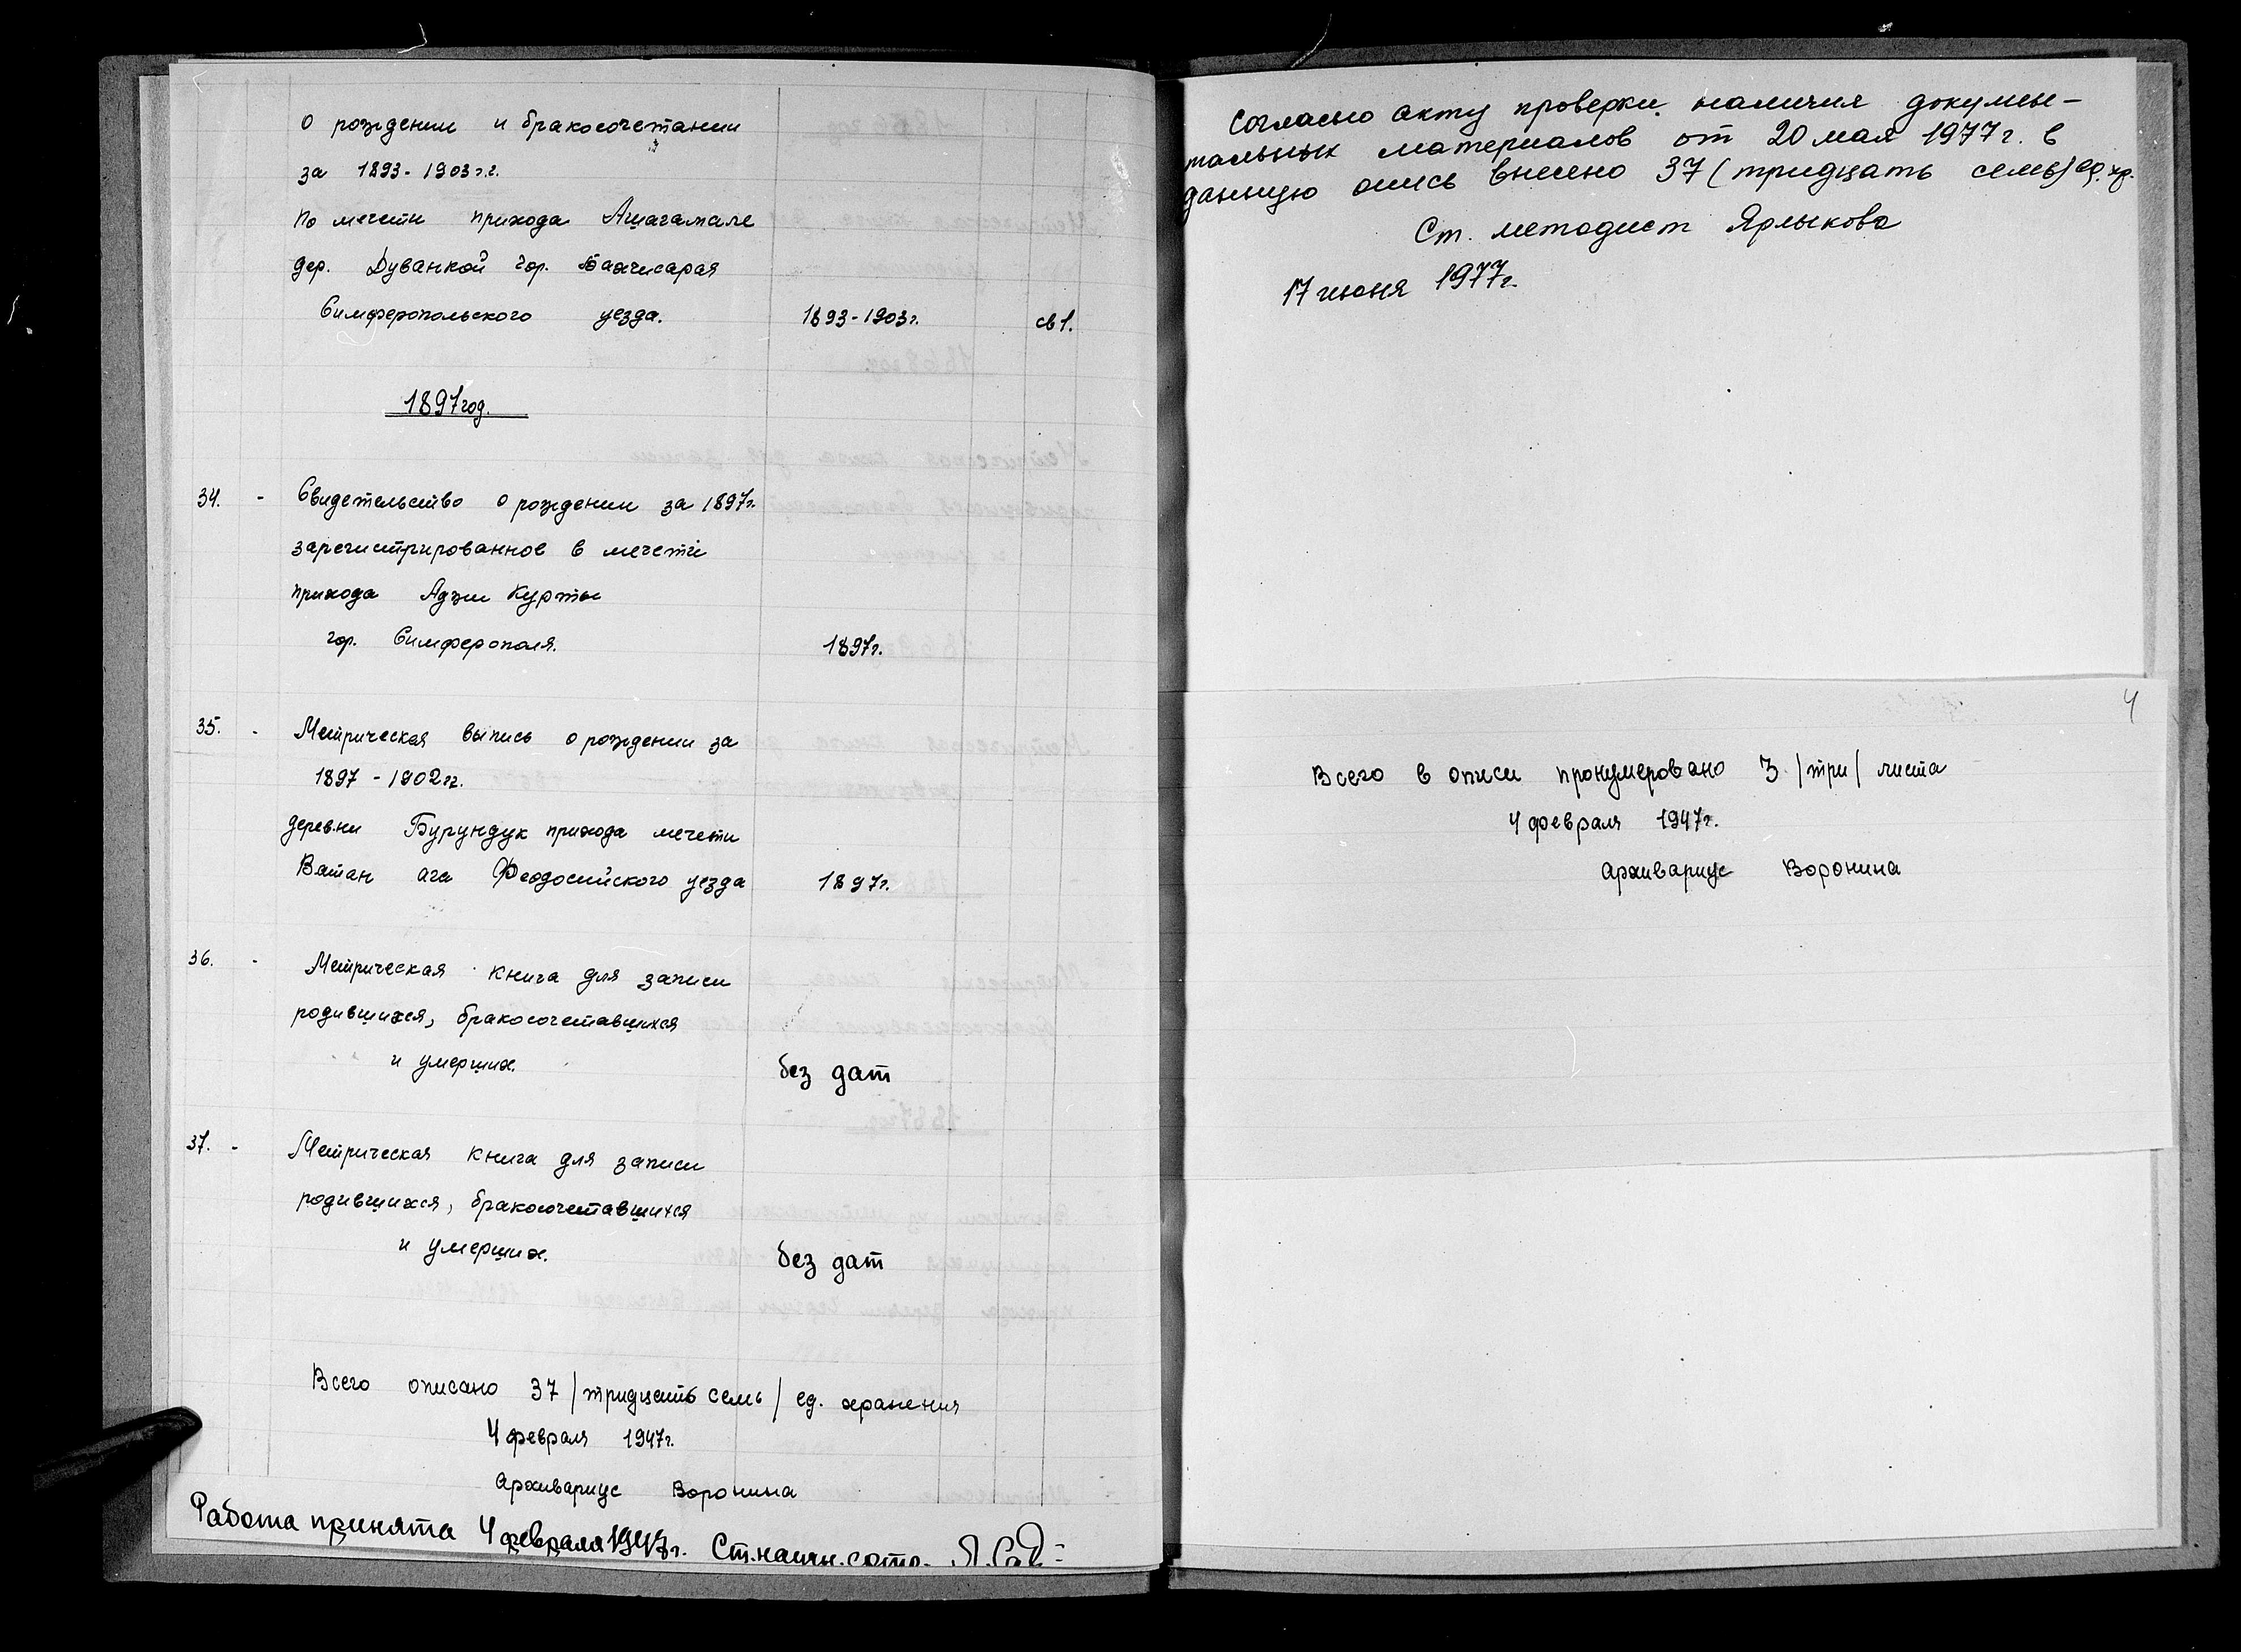 о рождении и бракосочетании
за 1893-1903 г.г.
по мечети прихода Ашагамале
дер. Дуванкой гор. Бахчисарая
Симферопольского уезда. 1893-1903г. св 1.
1897 год.
34. - Свидетельство о рождении за 1897г.
зарегистрированное в мечети
прихода Аджи Курты
гор. Симферополя. 1897г.
35. - Метрическая выпись о рождении за
1897 - 1902 гг.
деревни Бурундук прихода мечети
Ватан ага Феодосийского уезда 1897г.
36. - Метрическая книга для записи
родившихся, бракосочетавшихся
и умерших. без дат
37. - Метрическая книга для записи
родившихся, бракосочетавшихся
и умерших. без дат
Всего описано 37 /тридцать семь/ ед. хранения
4 февраля 1947г.
Архивариус Воронина
Работа принята 4 февраля 1947г. Ст. научн. сотр.
Согласно акту проверки наличия докумен-
тальных материалов от 20 мая 1977 г. в
данную опись внесено 37 (тридцать семь) ед. хр.
Ст. методист Ярлыкова
17 июня 1977г.
4
Всего в описи пронумеровано 3 /три/ листа
4 февраля 1947г.
Архивариус Воронина